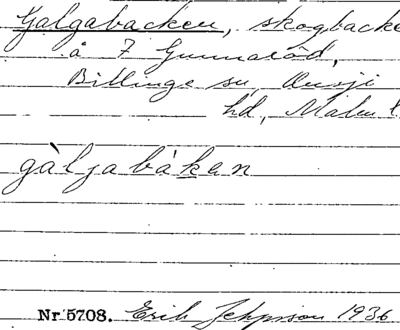 Galgabacken, skogbacke
å 7 Gunnaröd,
Billinge sn, Onsjö
hd, Malm. l.
gàljabàken
Nr 5708. Erik 1936